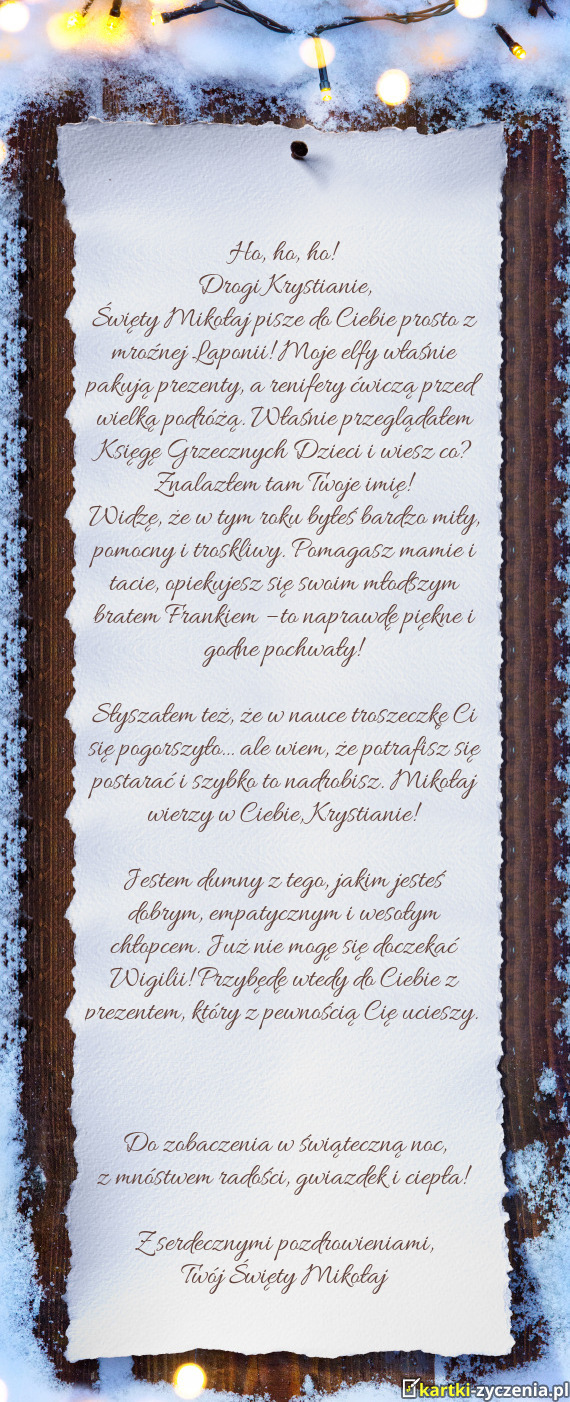 Ho, ho, ho!
Drogi Krystianie,
Święty Mikołaj pisze do Ciebie prosto z
mroźnej Laponii! Moje elfy właśnie
pakują prezenty, a renifery ćwiczą przed
wielką podróżą. Właśnie przeglądałem
Księgę Grzecznych Dzieci i wiesz co?
Znalazłem tam Twoje imię!
Widzę, że w tym roku byłeś bardzo miły,
pomocny i troskliwy. Pomagasz mamie i
tacie, opiekujesz się swoim młodszym
bratem Frankiem – to naprawdę piękne i
godne pochwały!
Słyszałem też, że w nauce troszeczkę Ci
się pogorszyło... ale wiem, że potrafisz się
postarać i szybko to nadrobisz. Mikołaj
wierzy w Ciebie, Krystianie!
Jestem dumny z tego, jakim jesteś
dobrym, empatycznym i wesołym
chłopcem. Już nie mogę się doczekać
Wigilii! Przybędę wtedy do Ciebie z
prezentem, który z pewnością Cię ucieszy.
Do zobaczenia w świąteczną noc,
z mnóstwem radości, gwiazdek i ciepła!
Z serdecznymi pozdrowieniami,
Twój Święty Mikołaj
kartki-zyczenia.pl